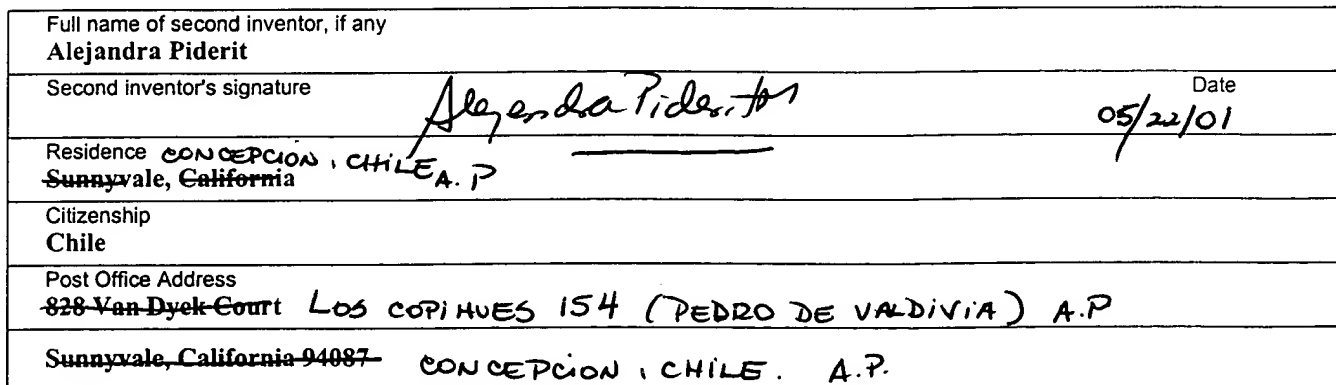 Full name of second inventor, if any
Alejandra Piderit
Second inventor's signature Alejandra Piderit Date
05/22/01
Residence CONCEPCION, CHILE A.P
Sunnyvale, California
Citizenship
Chile
Post Office Address
828 Van Dyck Court LOS COPIHUES 154 (PEDRO DE VALDIVIA) A.P
Sunnyvale, California 94087 CONCEPCION, CHILE. A.P.